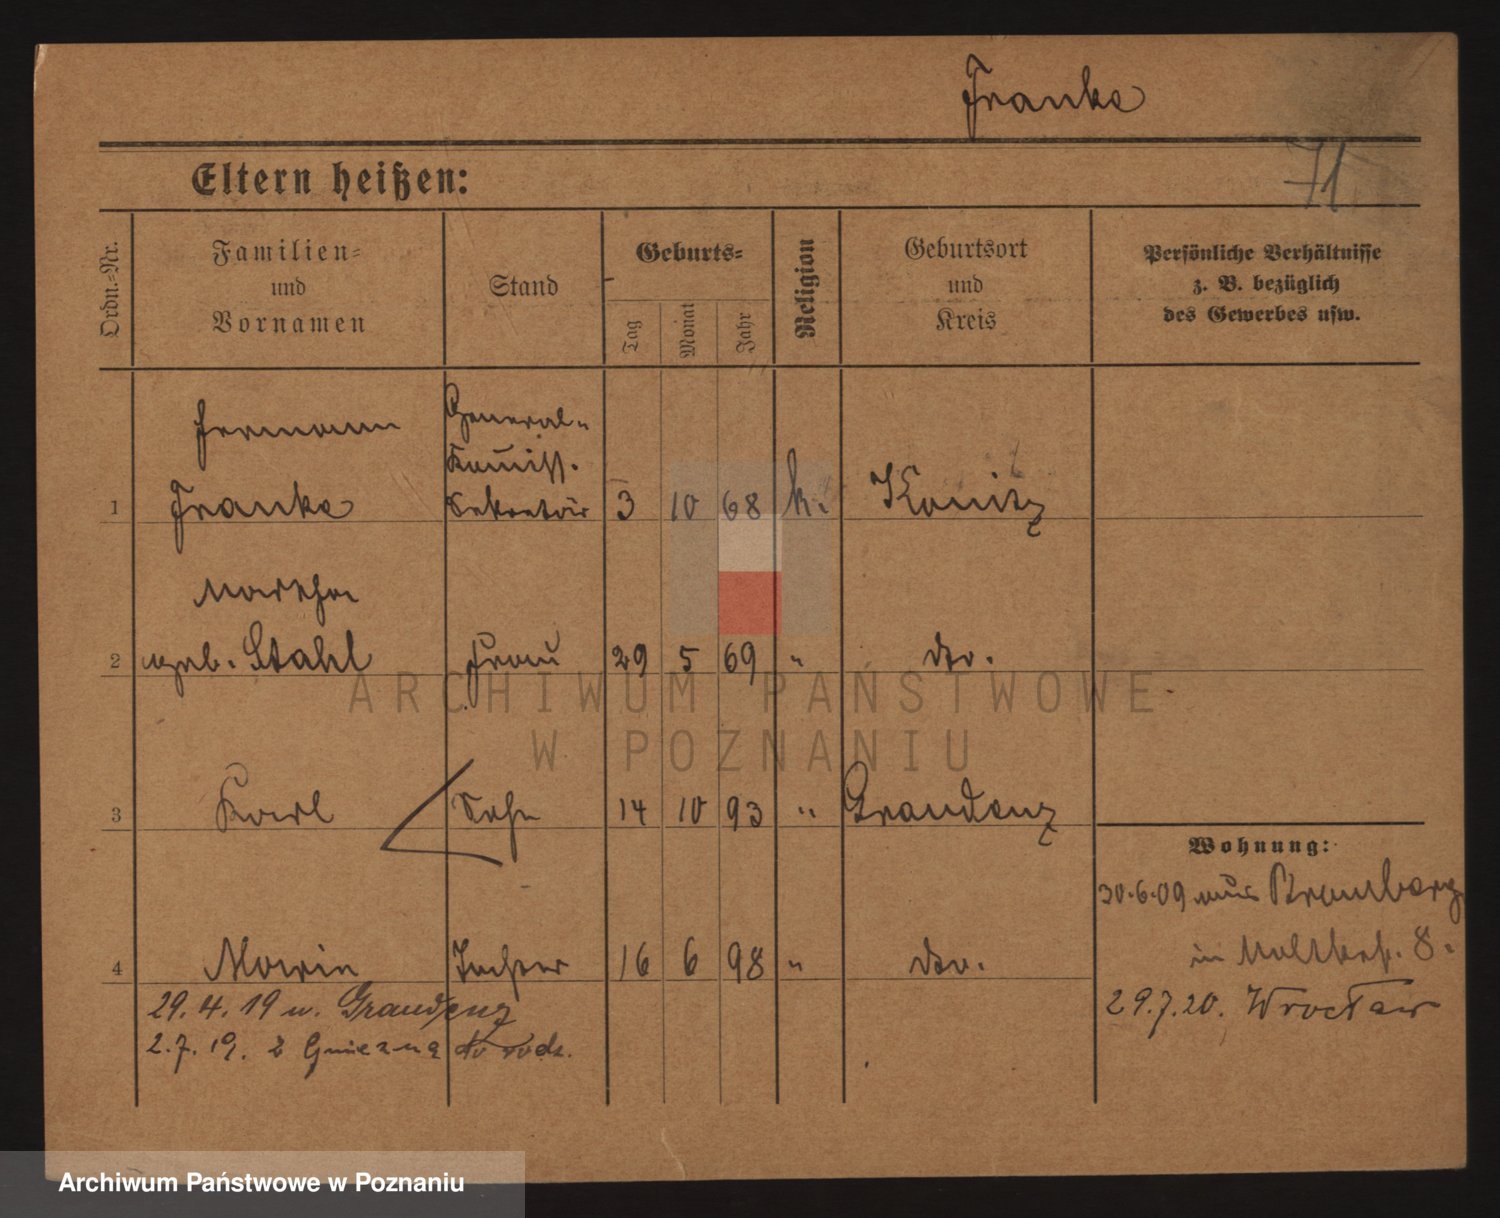 Franke
71
Eltern heißen:
Ordn.-Nr.
Familien-
und
Vornamen
Stand
Geburts-
Tag
Monat
Jahr
Religion
Geburtsort
und
Kreis
Persönliche Verhältnisse
z. B. bezüglich
des Gewerbes usw.
Hermann General-
Kom̅iss.
1 Franke Sekretär 3 10 68 k. Konitz
Martha
2 geb. Stahl Frau 29 5 69 " dto.
3 Karl Sohn 14 10 93 " Graudenz
Wohnung:
30.6.09 aus Bromberg
4 Maria Tochter 16 6 98 " dto.
in Moltkestr. 8.
29.4.19 n. Graudenz
29.7.20. Wrocław
2.7.19. z Gniezna do rodz.
ARCHIWUM PAŃSTWOWE
W POZNANIU
Archiwum Państwowe w Poznaniu